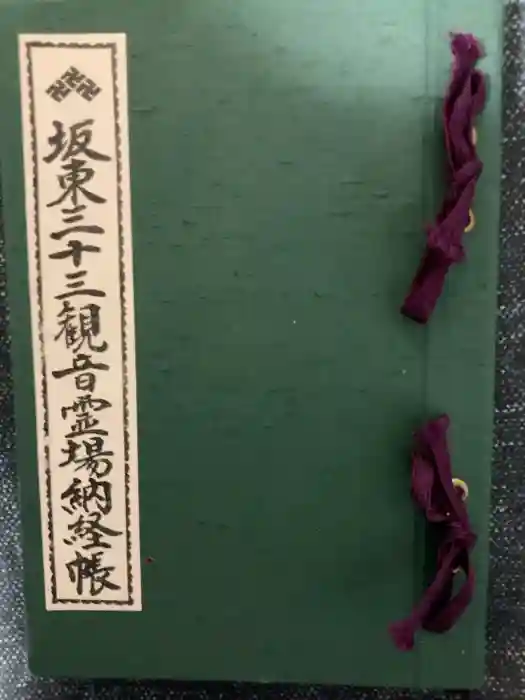 坂東三十三観音霊場納経帳